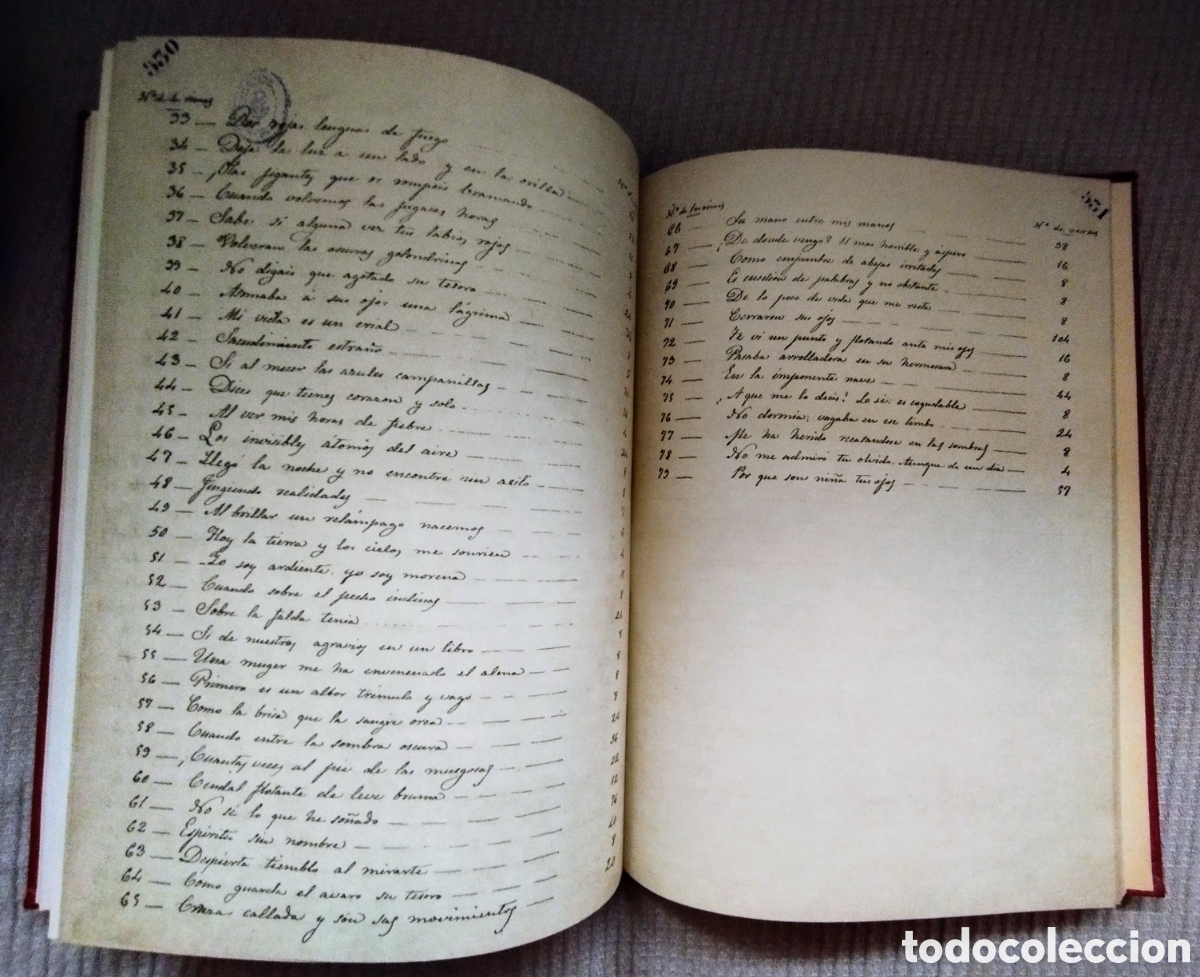 530
Nº de las rimas
33 — Dos rojas lenguas de fuego
34 — Dejé la luz a un lado y en la orilla
35 — ¡Olas gigantes que os rompeis bramando
36 — Cuando volvemos las fugaces horas
37 — Sabe si alguna vez tus labios rojos
38 — Volveran las oscuras golondrinas
39 — No digais que agotado su tesoro
40 — Asomaba á sus ojos una lágrima
41 — Mi vida es un erial
42 — Sacudimiento estraño
43 — Si al mecer las azules campanillas
44 — Dices que tienes corazon y solo
45 — Al ver mis horas de fiebre
46 — Los invisibles átomos del aire
47 — Llegó la noche y no encontre un asilo
48 — Fingiendo realidades
49 — Al brillar un relámpago nacemos
50 — Hoy la tierra y los cielos me sonrien
51 — Yo soy ardiente, yo soy morena
52 — Cuando sobre el pecho inclinas
53 — Sobre la falda tenia
54 — Si de nuestros agravios en un libro
55 — Una muger me ha envenenado el alma
56 — Primero es un albor trémulo y vago
57 — Como la brisa que la sangre orea
58 — Cuando entre la sombra oscura
59 — ¡Cuantas veces al pie de las musgosas
60 — Cendal flotante de leve bruma
61 — No sé lo que he soñado
62 — Espíritu sin nombre
63 — Despierta tiemblo al mirarte
64 — Como guarda el avaro su tesoro
65 — Cruza callada y son sus movimientos
531
Nº de las rimas Nº de versos
66 — Su mano entre mis manos 38
67 — ¿De donde vengo? El mas horrible y áspero 16
68 — Como enjambre de abejas irritadas 8
69 — Es cuestion de palabras y no obstante 8
70 — De lo poco de vida que me resta 8
71 — Cerraron sus ojos 104
72 — Te vi un punto y flotando ante mis ojos 16
73 — Pasaba arrolladora en su hermosura 8
74 — En la imponente nave 44
75 — ¿A que me lo decis? Lo sé: es 8
76 — No dormia; vagaba en ese limbo 24
77 — Me ha herido recatandose en las sombras 8
78 — No me admiró tu olvido. Aunque de un dia 4
79 — Por que son niña tus ojos 57
todocoleccion